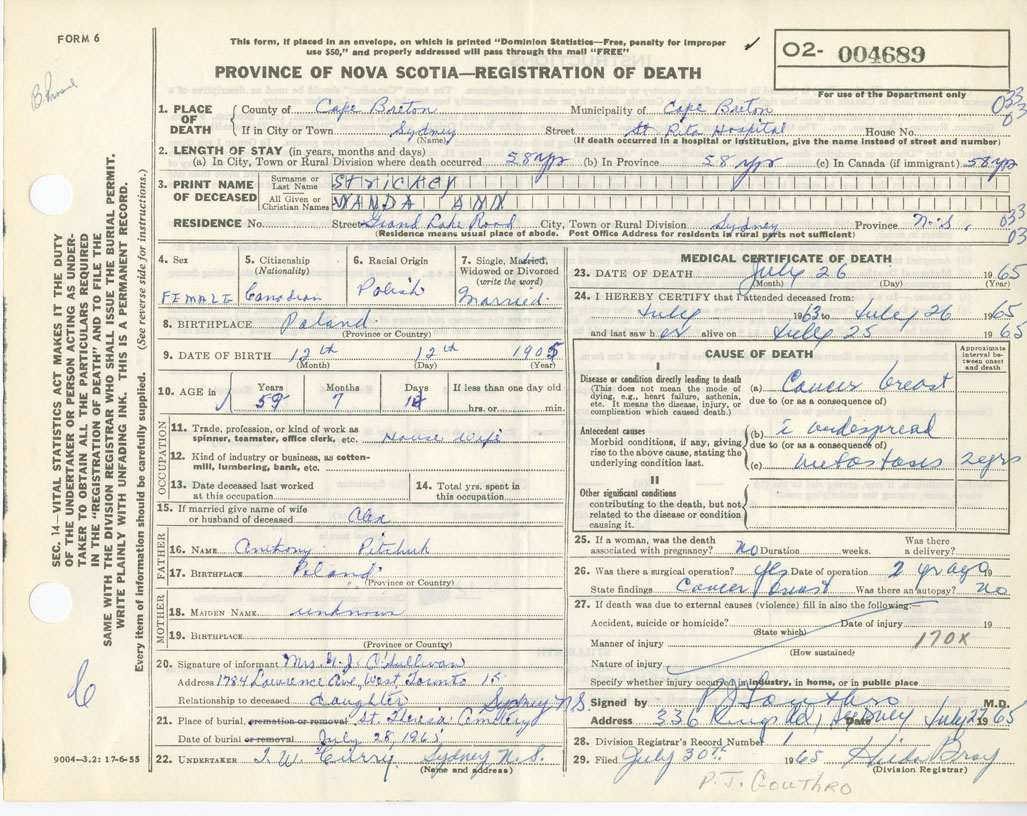 FORM 6
This form, if placed in an envelope, on which is printed "Dominion Statistics—Free, penalty for improper
use $50," and properly addressed will pass through the mail "FREE"
✓
02- 004689
For use of the Department only
PROVINCE OF NOVA SCOTIA—REGISTRATION OF DEATH
033
03
1. PLACE OF DEATH County of Cape Breton Municipality of Cape Breton
If in City or Town Sydney (Name) Street St Rita Hospital House No.
(If death occurred in a hospital or institution, give the name instead of street and number)
2. LENGTH OF STAY (in years, months and days)
(a) In City, Town or Rural Division where death occurred 58 yrs (b) In Province 58 yrs (c) In Canada (if immigrant) 58 yrs
3. PRINT NAME OF DECEASED Surname or Last Name
All Given or Christian Names WANDA ANN
RESIDENCE No. Street Grand Lake Road City, Town or Rural Division Sydney Province N.S. 033
03
(Residence means usual place of abode. Post Office Address for residents in rural parts not sufficient)
4. Sex FEMALE
5. Citizenship (Nationality) Canadian
6. Racial Origin Polish
7. Single, Married, Widowed or Divorced (write the word) Married.
8. BIRTHPLACE Poland
(Province or Country)
9. DATE OF BIRTH 12th 12th 1905
(Month) (Day) (Year)
10. AGE in Years 59 Months 7 Days If less than one day old hrs. or min.
OCCUPATION
11. Trade, profession, or kind of work as spinner, teamster, office clerk, etc. House Wife
12. Kind of industry or business, as cotton-mill, lumbering, bank, etc.
13. Date deceased last worked at this occupation
14. Total yrs. spent in this occupation
15. If married give name of wife or husband of deceased Alex
FATHER
16. NAME Anthony
17. BIRTHPLACE Poland
(Province or Country)
MOTHER
18. MAIDEN NAME unknown
19. BIRTHPLACE
(Province or Country)
20. Signature of informant Mrs. O'Sullivan
Address 1784 Lawrence Ave, West, Toronto 15
Relationship to deceased daughter Sydney N S
21. Place of burial, cremation or removal St. Theresa Cemetery
Date of burial or removal July 28, 1965
22. UNDERTAKER T. W. Curry Sydney N.S.
(Name and address)
MEDICAL CERTIFICATE OF DEATH
23. DATE OF DEATH July 26 1965
(Month) (Day) (Year)
24. I HEREBY CERTIFY that I attended deceased from:
July 1963 to July 26 1965
and last saw her alive on July 25 1965
CAUSE OF DEATH
Approximate interval between onset and death
I
Disease or condition directly leading to death
(This does not mean the mode of dying, e.g., heart failure, asthenia, etc. It means the disease, injury, or complication which caused death.)
(a) Cancer breast
due to (or as a consequence of)
Antecedent causes
Morbid conditions, if any, giving rise to the above cause, stating the underlying condition last.
(b) c widespread
due to (or as a consequence of)
(c) metastases 2 yrs
II
Other significant conditions contributing to the death, but not related to the disease or condition causing it.
25. If a woman, was the death associated with pregnancy? no Duration weeks. Was there a delivery?
26. Was there a surgical operation? yes Date of operation 2 yr ago 19
State findings Cancer breast Was there an autopsy? no
27. If death was due to external causes (violence) fill in also the following:—
Accident, suicide or homicide? Date of injury 19
(State which)
Manner of injury 170X
(How sustained)
Nature of injury
Specify whether injury occurred in industry, home, or in public place
Signed by P J Gouthro M.D.
Address 336 Kings Rd, Sydney Date July 27 1965
28. Division Registrar's Record Number 1
29. Filed July 30th 1965 Hilda Bray
(Division Registrar)
P. J. GOUTHRO
SEC. 14—VITAL STATISTICS ACT MAKES IT THE DUTY
OF THE UNDERTAKER OR PERSON ACTING AS UNDER-
TAKER TO OBTAIN ALL THE PARTICULARS REQUIRED
IN THE "REGISTRATION OF DEATH" AND TO FILE THE
SAME WITH THE DIVISION REGISTRAR WHO SHALL ISSUE THE BURIAL PERMIT.
WRITE PLAINLY WITH UNFADING INK. THIS IS A PERMANENT RECORD.
Every item of information should be carefully supplied. (See reverse side for instructions.)
9004—3.2: 17-6-55